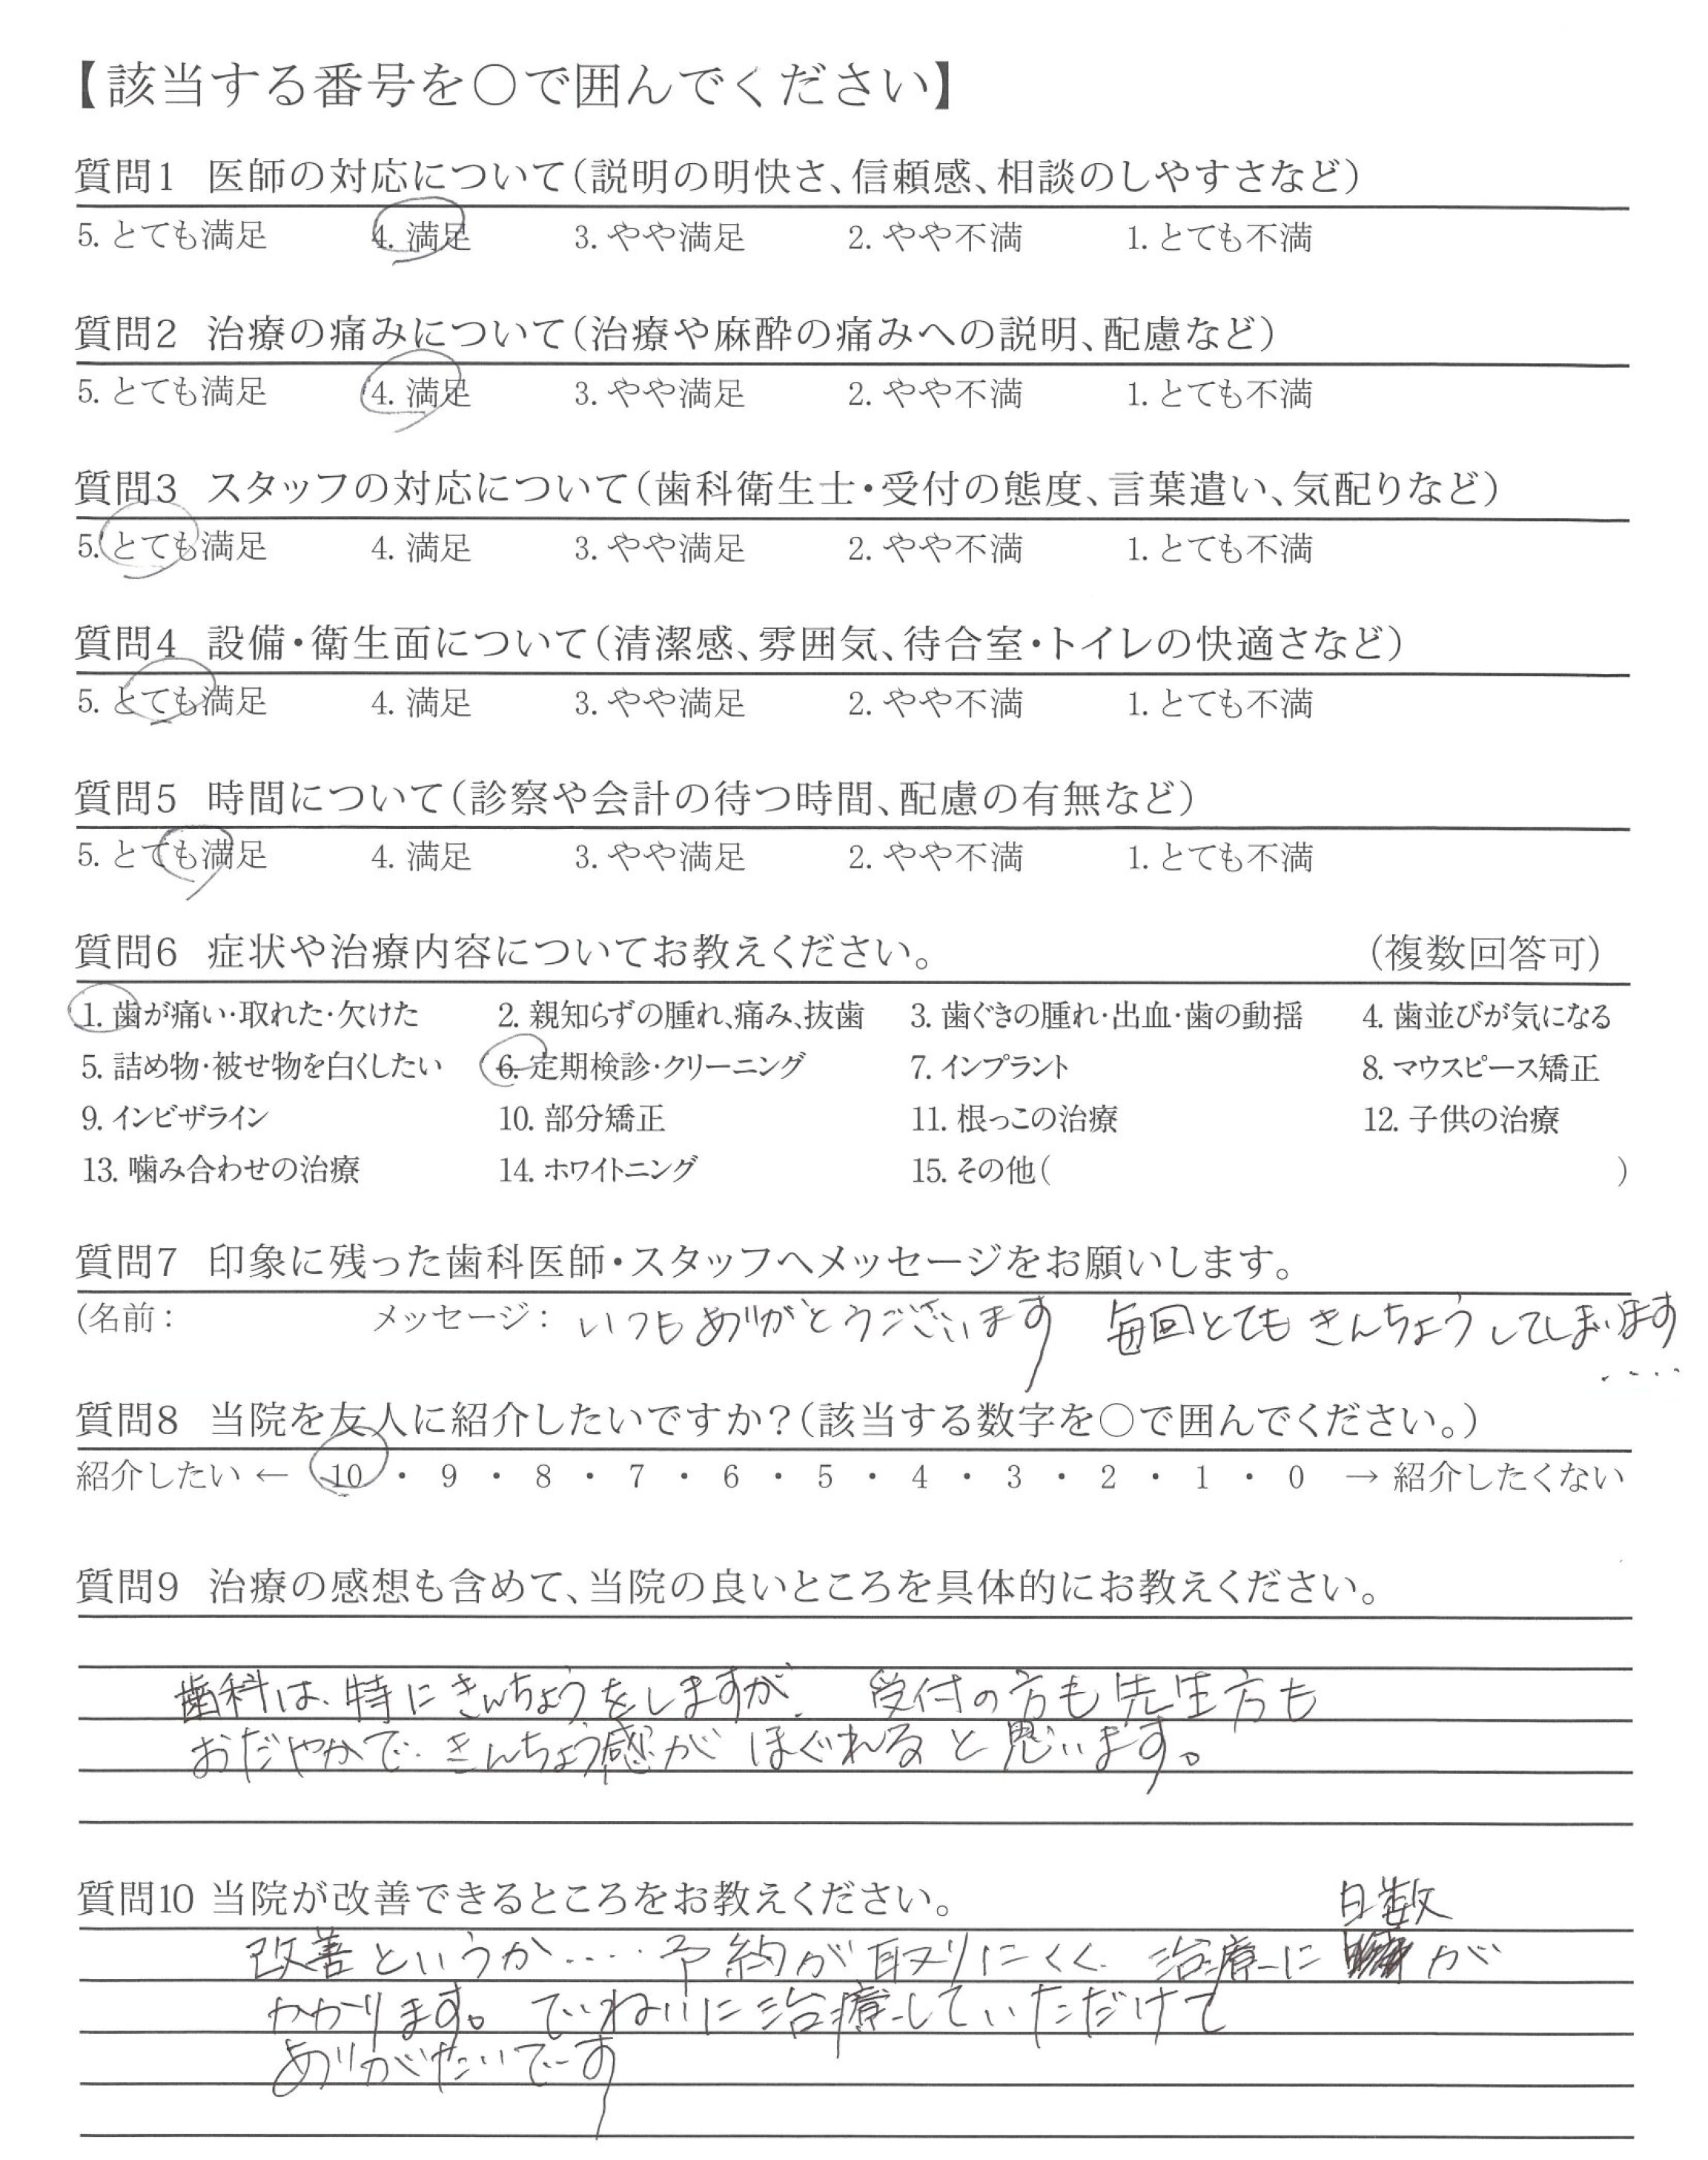 【該当する番号を〇で囲んでください】
質問1 医師の対応について(説明の明快さ、信頼感、相談のしやすさなど)
5. とても満足 4. 満足 3. やや満足 2. やや不満 1. とても不満
質問2 治療の痛みについて(治療や麻酔の痛みへの説明、配慮など)
5. とても満足 4. 満足 3. やや満足 2. やや不満 1. とても不満
質問3 スタッフの対応について(歯科衛生士・受付の態度、言葉遣い、気配りなど)
5. とても満足 4. 満足 3. やや満足 2. やや不満 1. とても不満
質問4 設備・衛生面について(清潔感、雰囲気、待合室・トイレの快適さなど)
5. とても満足 4. 満足 3. やや満足 2. やや不満 1. とても不満
質問5 時間について(診察や会計の待つ時間、配慮の有無など)
5. とても満足 4. 満足 3. やや満足 2. やや不満 1. とても不満
質問6 症状や治療内容についてお教えください。 (複数回答可)
1. 歯が痛い・取れた・欠けた 2. 親知らずの腫れ、痛み、抜歯 3. 歯ぐきの腫れ・出血・歯の動揺 4. 歯並びが気になる
5. 詰め物・被せ物を白くしたい 6. 定期検診・クリーニング 7. インプラント 8. マウスピース矯正
9. インビザライン 10. 部分矯正 11. 根っこの治療 12. 子供の治療
13. 噛み合わせの治療 14. ホワイトニング 15. その他( )
質問7 印象に残った歯科医師・スタッフへメッセージをお願いします。
(名前: メッセージ: いつもありがとうございます 毎回とてもきんちょうしてしまいます
....
質問8 当院を友人に紹介したいですか?(該当する数字を〇で囲んでください。)
紹介したい ← 10 ・ 9 ・ 8 ・ 7 ・ 6 ・ 5 ・ 4 ・ 3 ・ 2 ・ 1 ・ 0 → 紹介したくない
質問9 治療の感想も含めて、当院の良いところを具体的にお教えください。
歯科は、特にきんちょうをしますが、受付の方も先生方も
おだやかで、きんちょう感がほぐれると思います。
質問10 当院が改善できるところをお教えください。
改善というか....予約が取りにくく、治療に日数が
かかります。ていねいに治療していただけて
ありがたいです